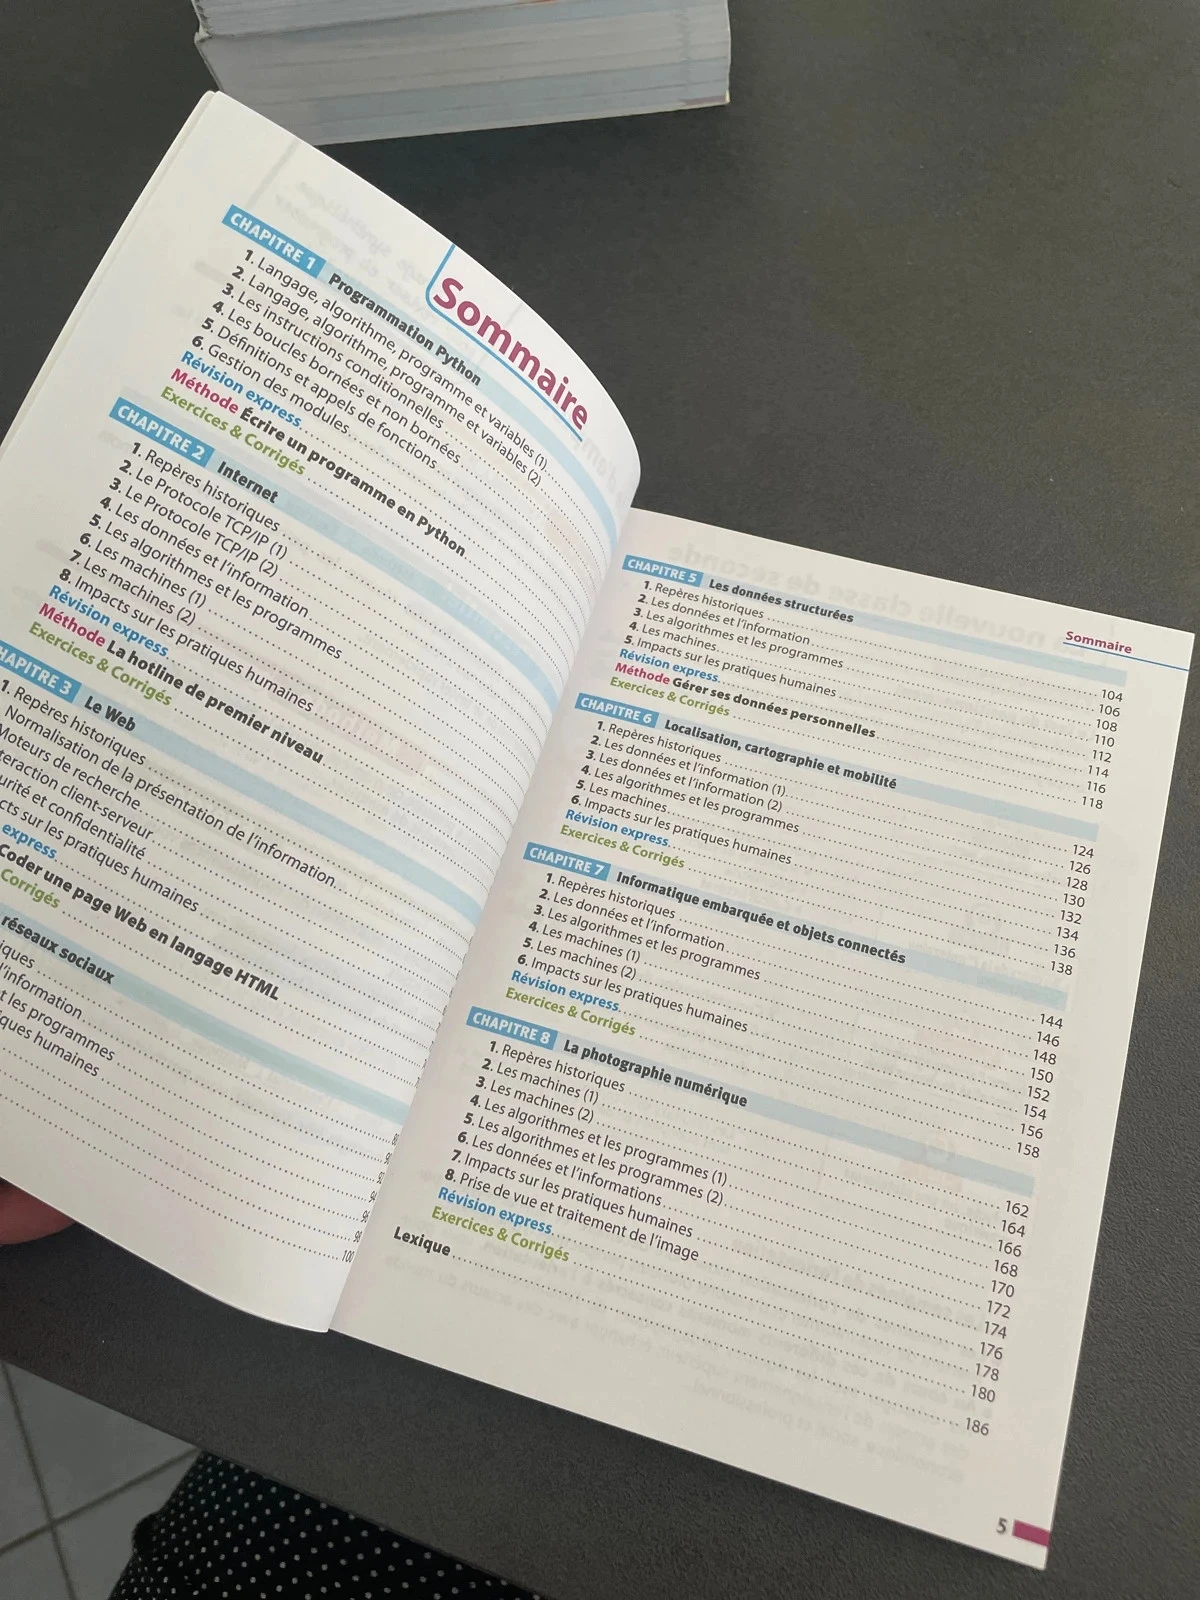 Sommaire
CHAPITRE 1 Programmation Python
1. Langage, algorithme, programme et variables (1)
2. Langage, algorithme, programme et variables (2)
3. Les instructions conditionnelles
4. Les boucles bornées et non bornées
5. Définitions et appels de fonctions
6. Gestion des modules
Révision express
Méthode Écrire un programme en Python
Exercices & Corrigés
CHAPITRE 2 Internet
1. Repères historiques
2. Le Protocole TCP/IP (1)
3. Le Protocole TCP/IP (2)
4. Les données et l'information
5. Les algorithmes et les programmes
6. Les machines (1)
7. Les machines (2)
8. Impacts sur les pratiques humaines
Révision express
Méthode La hotline de premier niveau
Exercices & Corrigés
CHAPITRE 3 Le Web
1. Repères historiques
Normalisation de la présentation de l'information
Moteurs de recherche
client-serveur
et confidentialité
sur les pratiques humaines
express
Coder une page Web en langage HTML
Corrigés
réseaux sociaux
l'information
et les programmes
humaines
100
Sommaire
CHAPITRE 5 Les données structurées
1. Repères historiques 104
2. Les données et l'information 106
3. Les algorithmes et les programmes 108
4. Les machines 110
5. Impacts sur les pratiques humaines 112
Révision express 114
Méthode Gérer ses données personnelles 116
Exercices & Corrigés 118
CHAPITRE 6 Localisation, cartographie et mobilité
1. Repères historiques 124
2. Les données et l'information (1) 126
3. Les données et l'information (2) 128
4. Les algorithmes et les programmes 130
5. Les machines 132
6. Impacts sur les pratiques humaines 134
Révision express 136
Exercices & Corrigés 138
CHAPITRE 7 Informatique embarquée et objets connectés
1. Repères historiques 144
2. Les données et l'information 146
3. Les algorithmes et les programmes 148
4. Les machines (1) 150
5. Les machines (2) 152
6. Impacts sur les pratiques humaines 154
Révision express 156
Exercices & Corrigés 158
CHAPITRE 8 La photographie numérique
1. Repères historiques 162
2. Les machines (1) 164
3. Les machines (2) 166
4. Les algorithmes et les programmes (1) 168
5. Les algorithmes et les programmes (2) 170
6. Les données et l'informations 172
7. Impacts sur les pratiques humaines 174
8. Prise de vue et traitement de l'image 176
Révision express 178
Exercices & Corrigés 180
Lexique 186
5